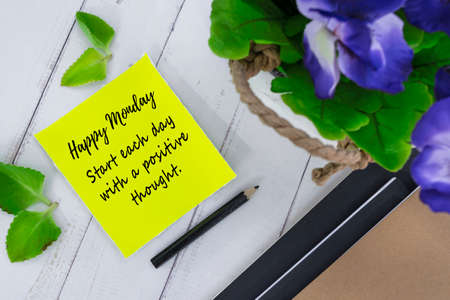 Happy Monday
Start each day
with a positive
thought.